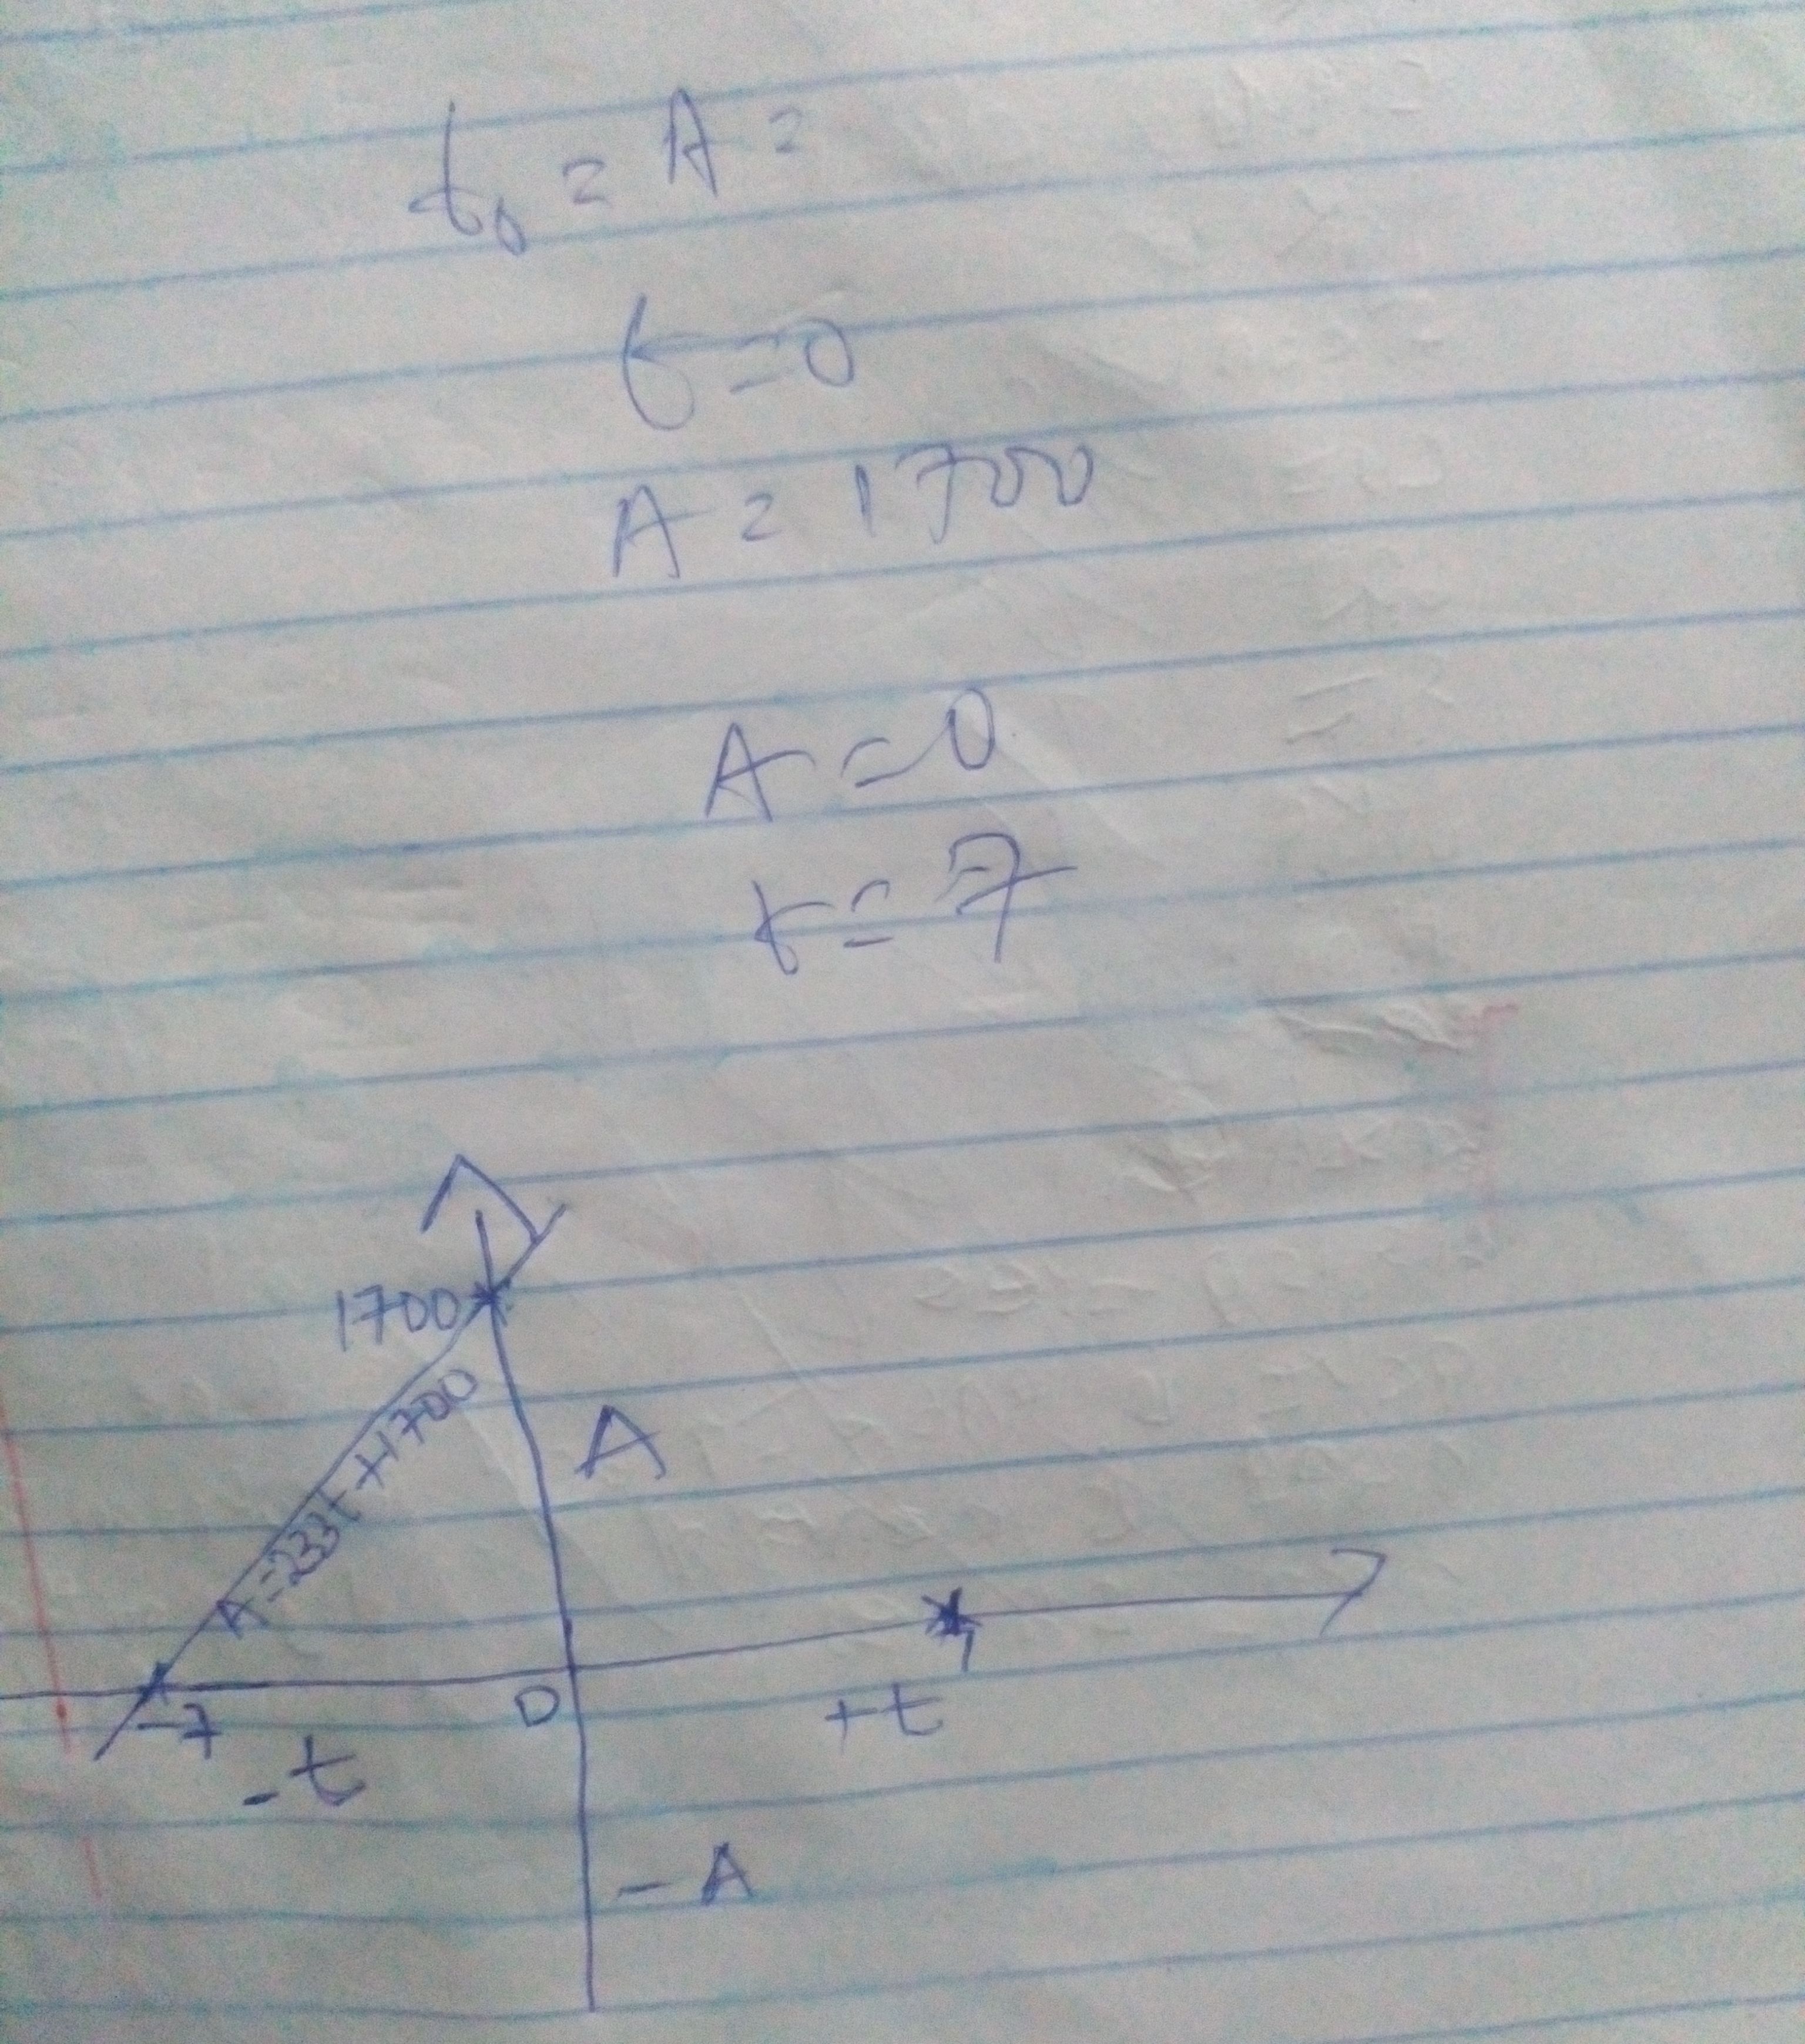 t₀ = A =
t = 0
A = 1700
A = 0
t = 7
1700
A
A = 233t + 1700
-7
0
+t
-t
-A